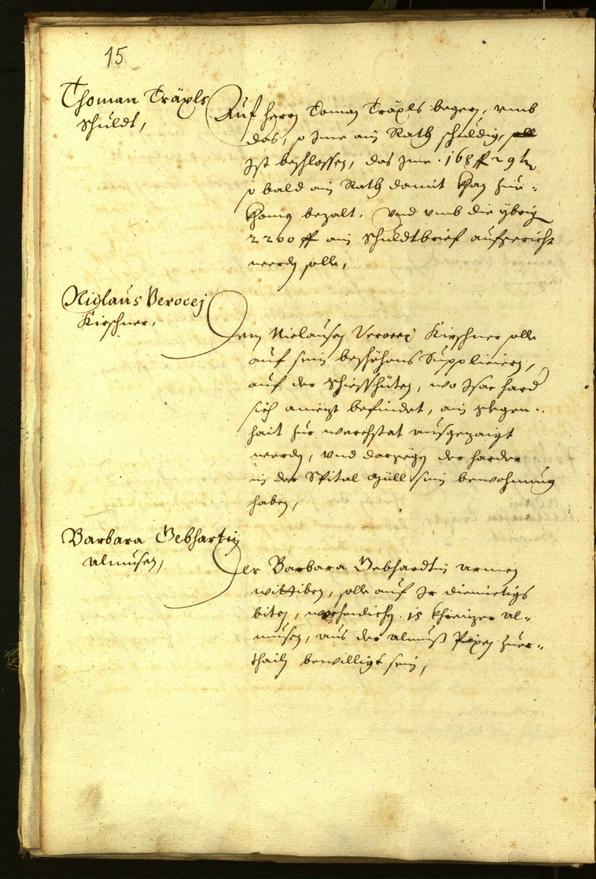 15
Thoman Träxls
schuldt,
Auf Herrn Toman Träxls begern, umb
das, so Ime ain Rath schuldig,
Ist beschlossen, das Ime 168 f 29
so bald ain Rath damit khan für-
khomen bezalt. Und umb die ybrig
2200 f ain schuldtbrief aufgericht
werden solle,
Niglaus Verocej
Kirschner.
Dem Niclausen Verocej Kirschner solle
auf sein beschehens Suppliciern,
auf der schiesshüten, wo
sich befindet, ain gelegen-
hait zur werchstat ausgezaigt
werden, und der harder
in der Spital Müll sein bewohnung
haben,
Barbara Gebhartin
Almusen,
Der Barbara Gebhardtin armen
wittiben, solle auf Ir diemietigs
biten, wochendlich 15 khreizer al-
musen, aus der almus Pixen zuer-
thailn bewilligt sein,